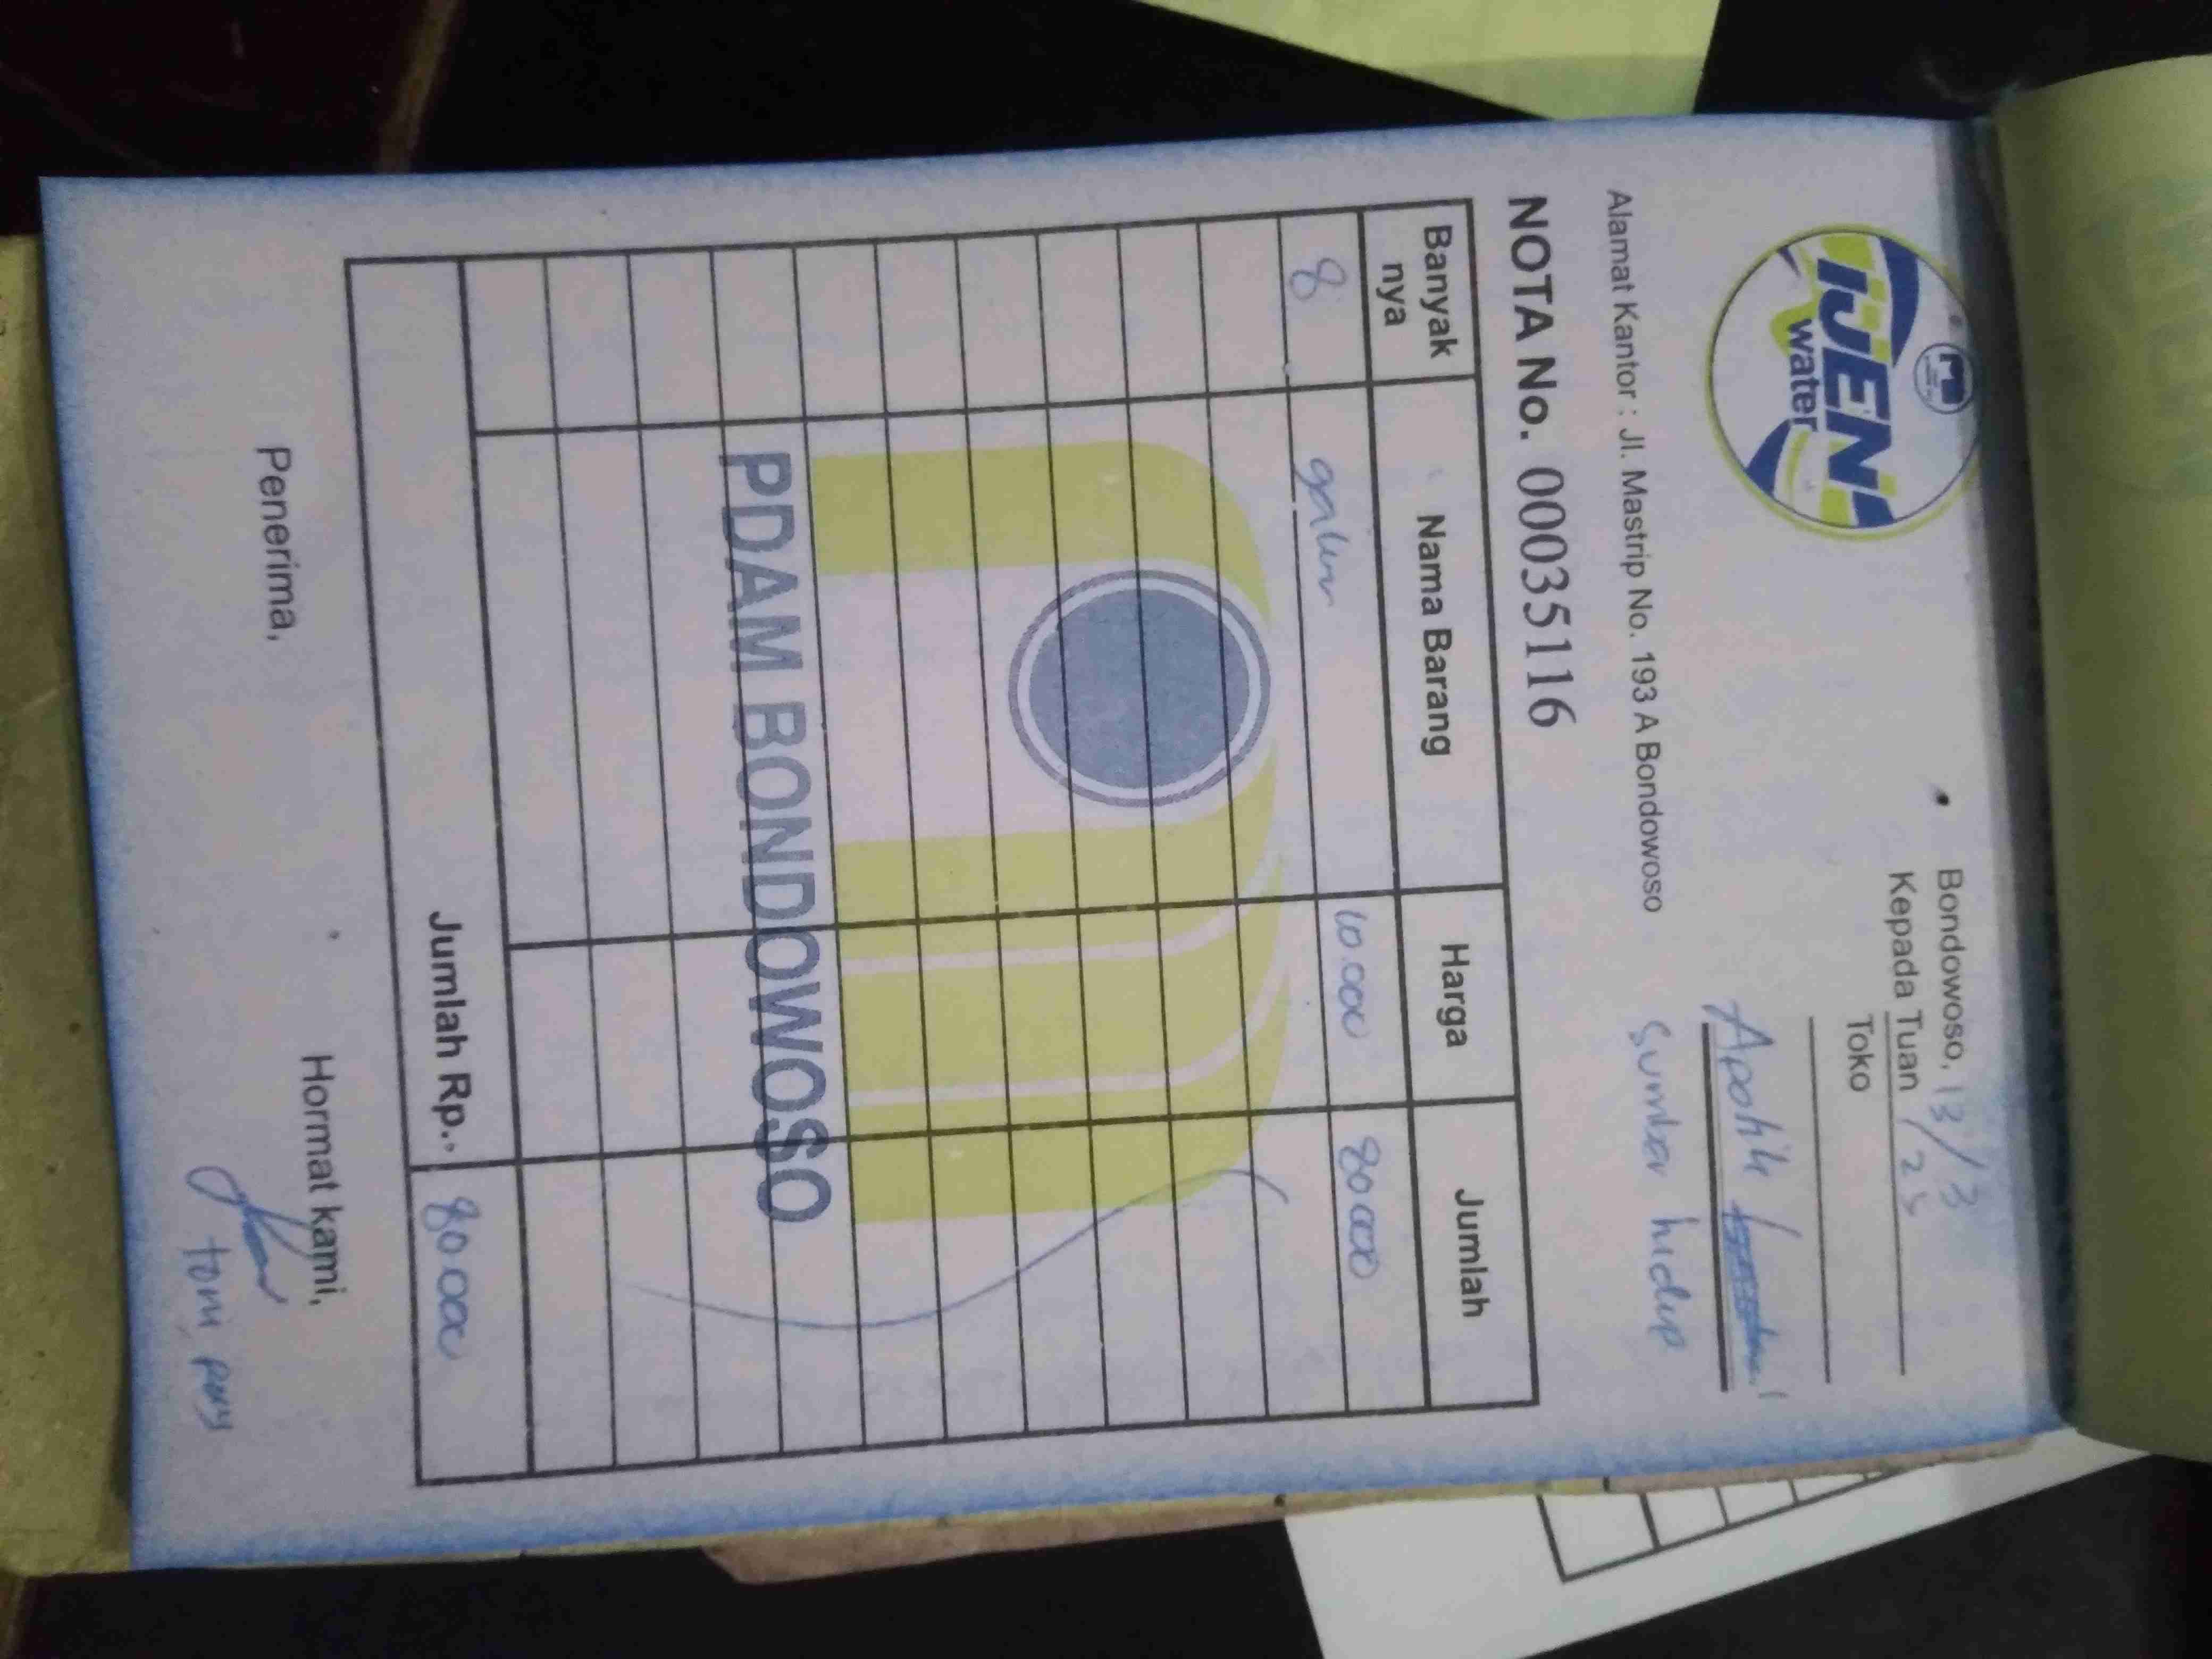 IJEN
water
Bondowoso, 13/3
Kepada Tuan /25
Toko
Apotik
Sumber hidup
Alamat Kantor : Jl. Mastrip No. 193 A Bondowoso
NOTA No. 00035116
Banyak nya Nama Barang Harga Jumlah
8 galon 10.000 80.000
PDAM BONDOWOSO
Jumlah Rp. 80.000
Penerima, Hormat kami,
toni